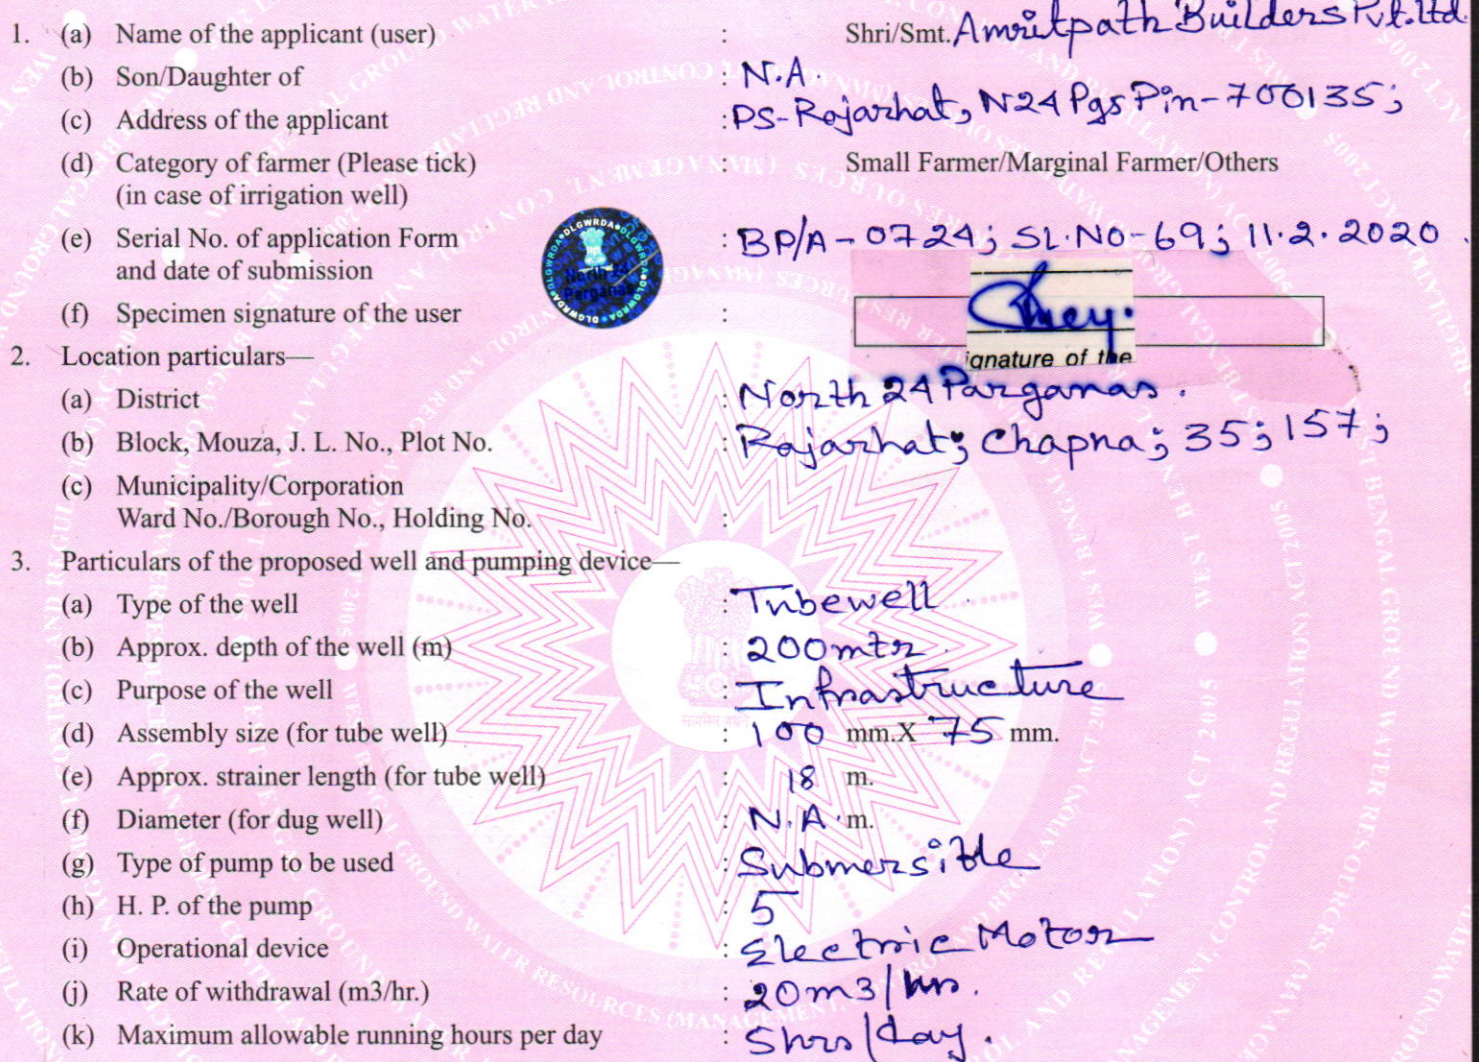 1. (a) Name of the applicant (user) : Shri/Smt. Amritpath Builders Pvt. Ltd.
(b) Son/Daughter of : N.A.
(c) Address of the applicant : PS-Rajarhat, N24 Pgs Pin-700135;
(d) Category of farmer (Please tick) : Small Farmer/Marginal Farmer/Others
(in case of irrigation well)
(e) Serial No. of application Form : BP/A-0724; SL.NO-69; 11.2.2020.
and date of submission
DLGWRDA
North 24
Parganas
(f) Specimen signature of the user :
ignature of the
2. Location particulars—
(a) District : North 24 Parganas.
(b) Block, Mouza, J. L. No., Plot No. : Rajarhat; Chapna; 35; 157;
(c) Municipality/Corporation
Ward No./Borough No., Holding No. :
3. Particulars of the proposed well and pumping device—
(a) Type of the well : Tubewell
(b) Approx. depth of the well (m) : 200mtr.
(c) Purpose of the well : Infrastructure
(d) Assembly size (for tube well) : 100 mm.X 75 mm.
(e) Approx. strainer length (for tube well) : 18 m.
(f) Diameter (for dug well) : N.A. m.
(g) Type of pump to be used : Submersible
(h) H. P. of the pump : 5
(i) Operational device : Electric Motor
(j) Rate of withdrawal (m3/hr.) : 20m3/hr.
(k) Maximum allowable running hours per day : 5hrs/day.